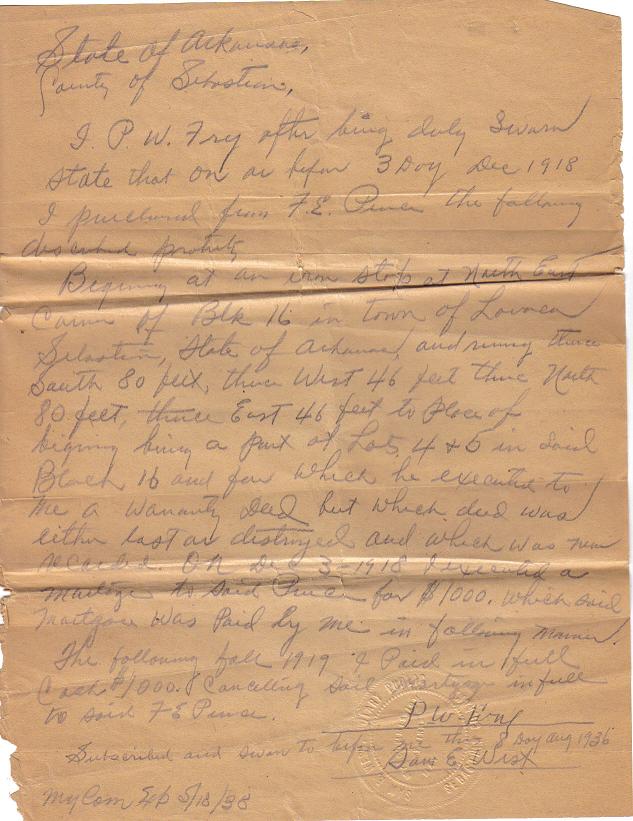 State of Arkansas,
County of Sebastian,
I P. W. Fry after being duly Sworn
state that on or befor 3 Day Dec 1918
I purchased from F. E. Pence the following
described
Begining at an iron stop at North East
Corner of Blk 16 in town of Lavaca
Sebastian, State of Arkansas, and runing thence
South 80 feet, thence West 46 feet thence North
80 feet, thence East 46 feet to Place of
begining being a part of Lots 4 + 5 in said
Block 16 and for which he executed to
me a Warranty Deed but which deed was
either lost or destroyed and which was never
recorded. On Dec 3 - 1918 I executed a
mortgage to said Pence for $1000. which said
Mortgage was Paid by me in following manner.
The following fall 1919 I Paid in full
Cash $1000. Cancelling said mortgage in full
to said F E Pence.
P W Fry
Subscribed and sworn to befor me this 8 Day Aug 1936
E. West
My Com Exp 5/18/38